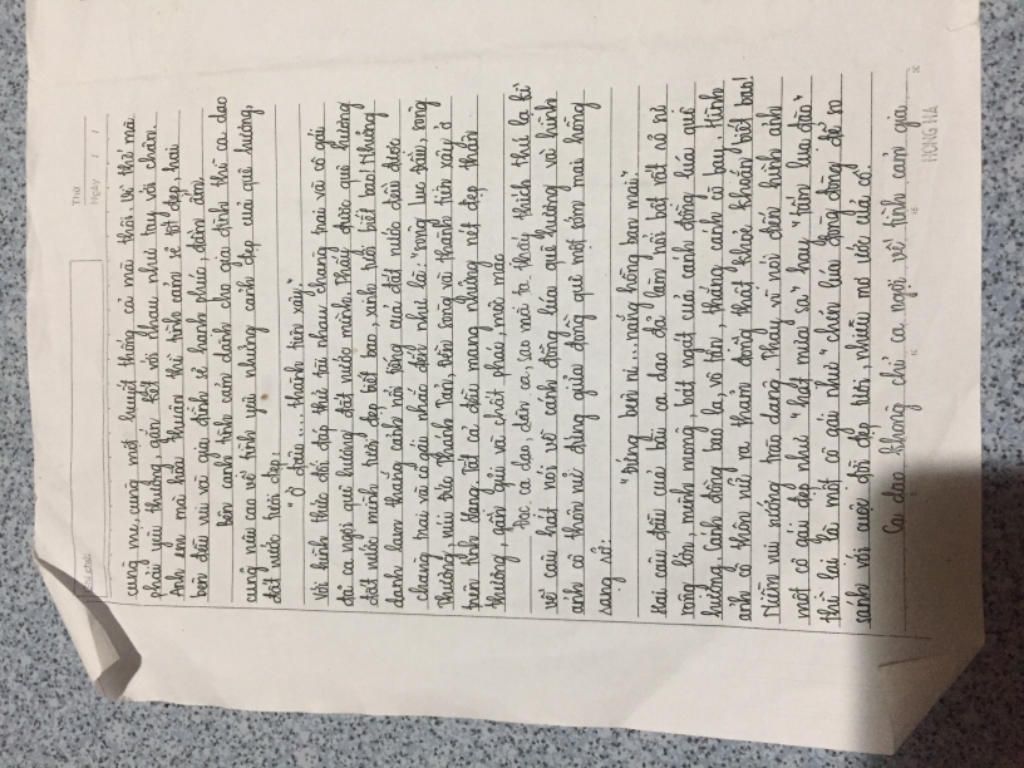 Thứ
Ngày / /
cùng mẹ, cùng một huyết thống cả mà thôi vì thế mà
phải yêu thương, gắn kết với nhau như tay với chân.
Anh em mà hòa thuận thì tình cảm sẽ tốt đẹp hai
bên đều vui và gia đình sẽ hạnh phúc, đầm ấm.
Bên cạnh tình cảm dành cho gia đình thì ca dao
cũng nêu cao về tình yêu những cảnh đẹp của quê hương,
đất nước tươi đẹp:
"Ở đâu .... thành tiên xây."
Với hình thức đối đáp thử tài nhau chàng trai và cô gái
đã ca ngợi quê hương đất nước mình. Thấy được quê hương
đất nước mình tươi đẹp biết bao, xinh tươi biết bao! Những
danh lam thắng cảnh nổi tiếng của đất nước đều được
chàng trai và cô gái nhắc đến như là: "sông Lục Đầu, sông
Thương, núi Đức Thánh Tản, đền Sòng và thành tiên xây ở
trên tỉnh Lạng. Tất cả đều mang những nét đẹp thân
thương, gần gũi và chất phác, mộc mạc
Đọc ca dao, dân ca, sao mỗi ta thấy thích thú lạ kì
về câu hát nói về cánh đồng lúa quê hương và hình
ảnh cô thôn nữ đứng giữa đồng quê một sớm mai hồng
rạng rỡ:
"Đứng bên ni ... nắng hồng ban mai".
Hai câu đầu của bài ca dao đã làm nổi bật vật sự
rộng lớn, mênh mông, bát ngát của cánh đồng lúa quê
hương. Cánh đồng bao la, vô tận, thẳng cánh cò bay. Hình
ảnh cô thôn nữ ra thăm đồng thật khoẻ khoắn biết bao!
Niềm vui sướng trào dâng. Thay vì nói đến hình ảnh
một cô gái đẹp như "hạt mưa sa" hay "tấm lụa đào"
thì lại là một cô gái như "chẽn lúa đòng đòng để so
sánh với cuộc đời đẹp tươi, nhiều mơ ước của cô.
Ca dao không chỉ ca ngợi về tình cảm gia
HONG HA